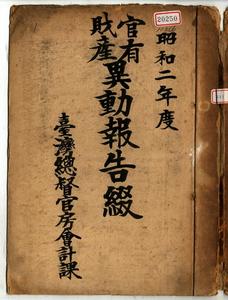 20250
昭和二年度
官有
財産
異動報告綴
臺灣總督官房會計課